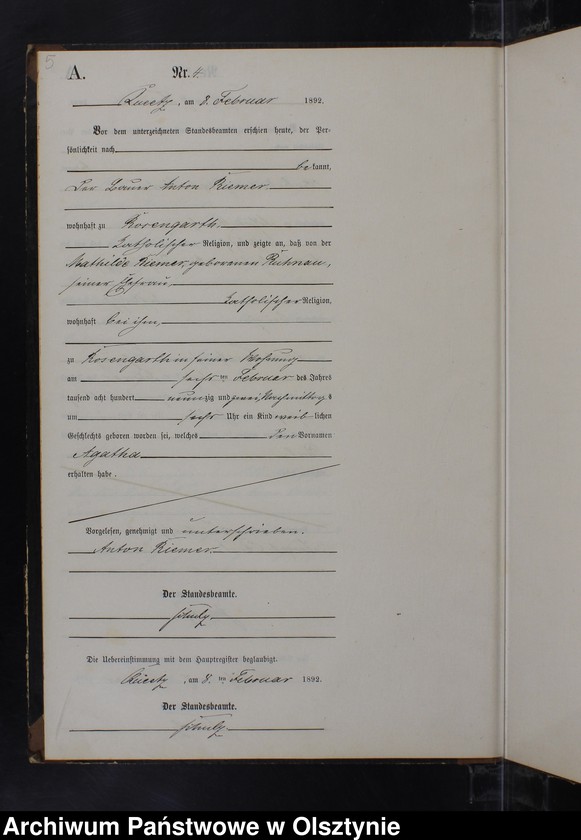 5
A. Nr. 4.
Queetz, am 8. Februar 1892.
Vor dem unterzeichneten Standesbeamten erschien heute, der Per-
sönlichkeit nach
bekannt,
der Bauer Anton Riemer
wohnhaft zu Rosengarth
katholischer Religion, und zeigte an, daß von der
Mathilde Riemer, geborenen Kuhnau,
seiner Ehefrau
katholischer Religion,
wohnhaft bei ihm,
zu Rosengarth in seiner Wohnung
am sechs ten Februar des Jahres
tausend acht hundert neunzig und zwei Nachmittags
um sechs Uhr ein Kind weiblichen
Geschlechts geboren worden sei, welches den Vornamen
Agatha
erhalten habe.
Vorgelesen, genehmigt und unterschrieben.
Anton Riemer
Der Standesbeamte.
Schulz
Die Uebereinstimmung mit dem Hauptregister beglaubigt.
Queetz, am 8. ten Februar 1892.
Der Standesbeamte.
Schulz
Archiwum Państwowe w Olsztynie